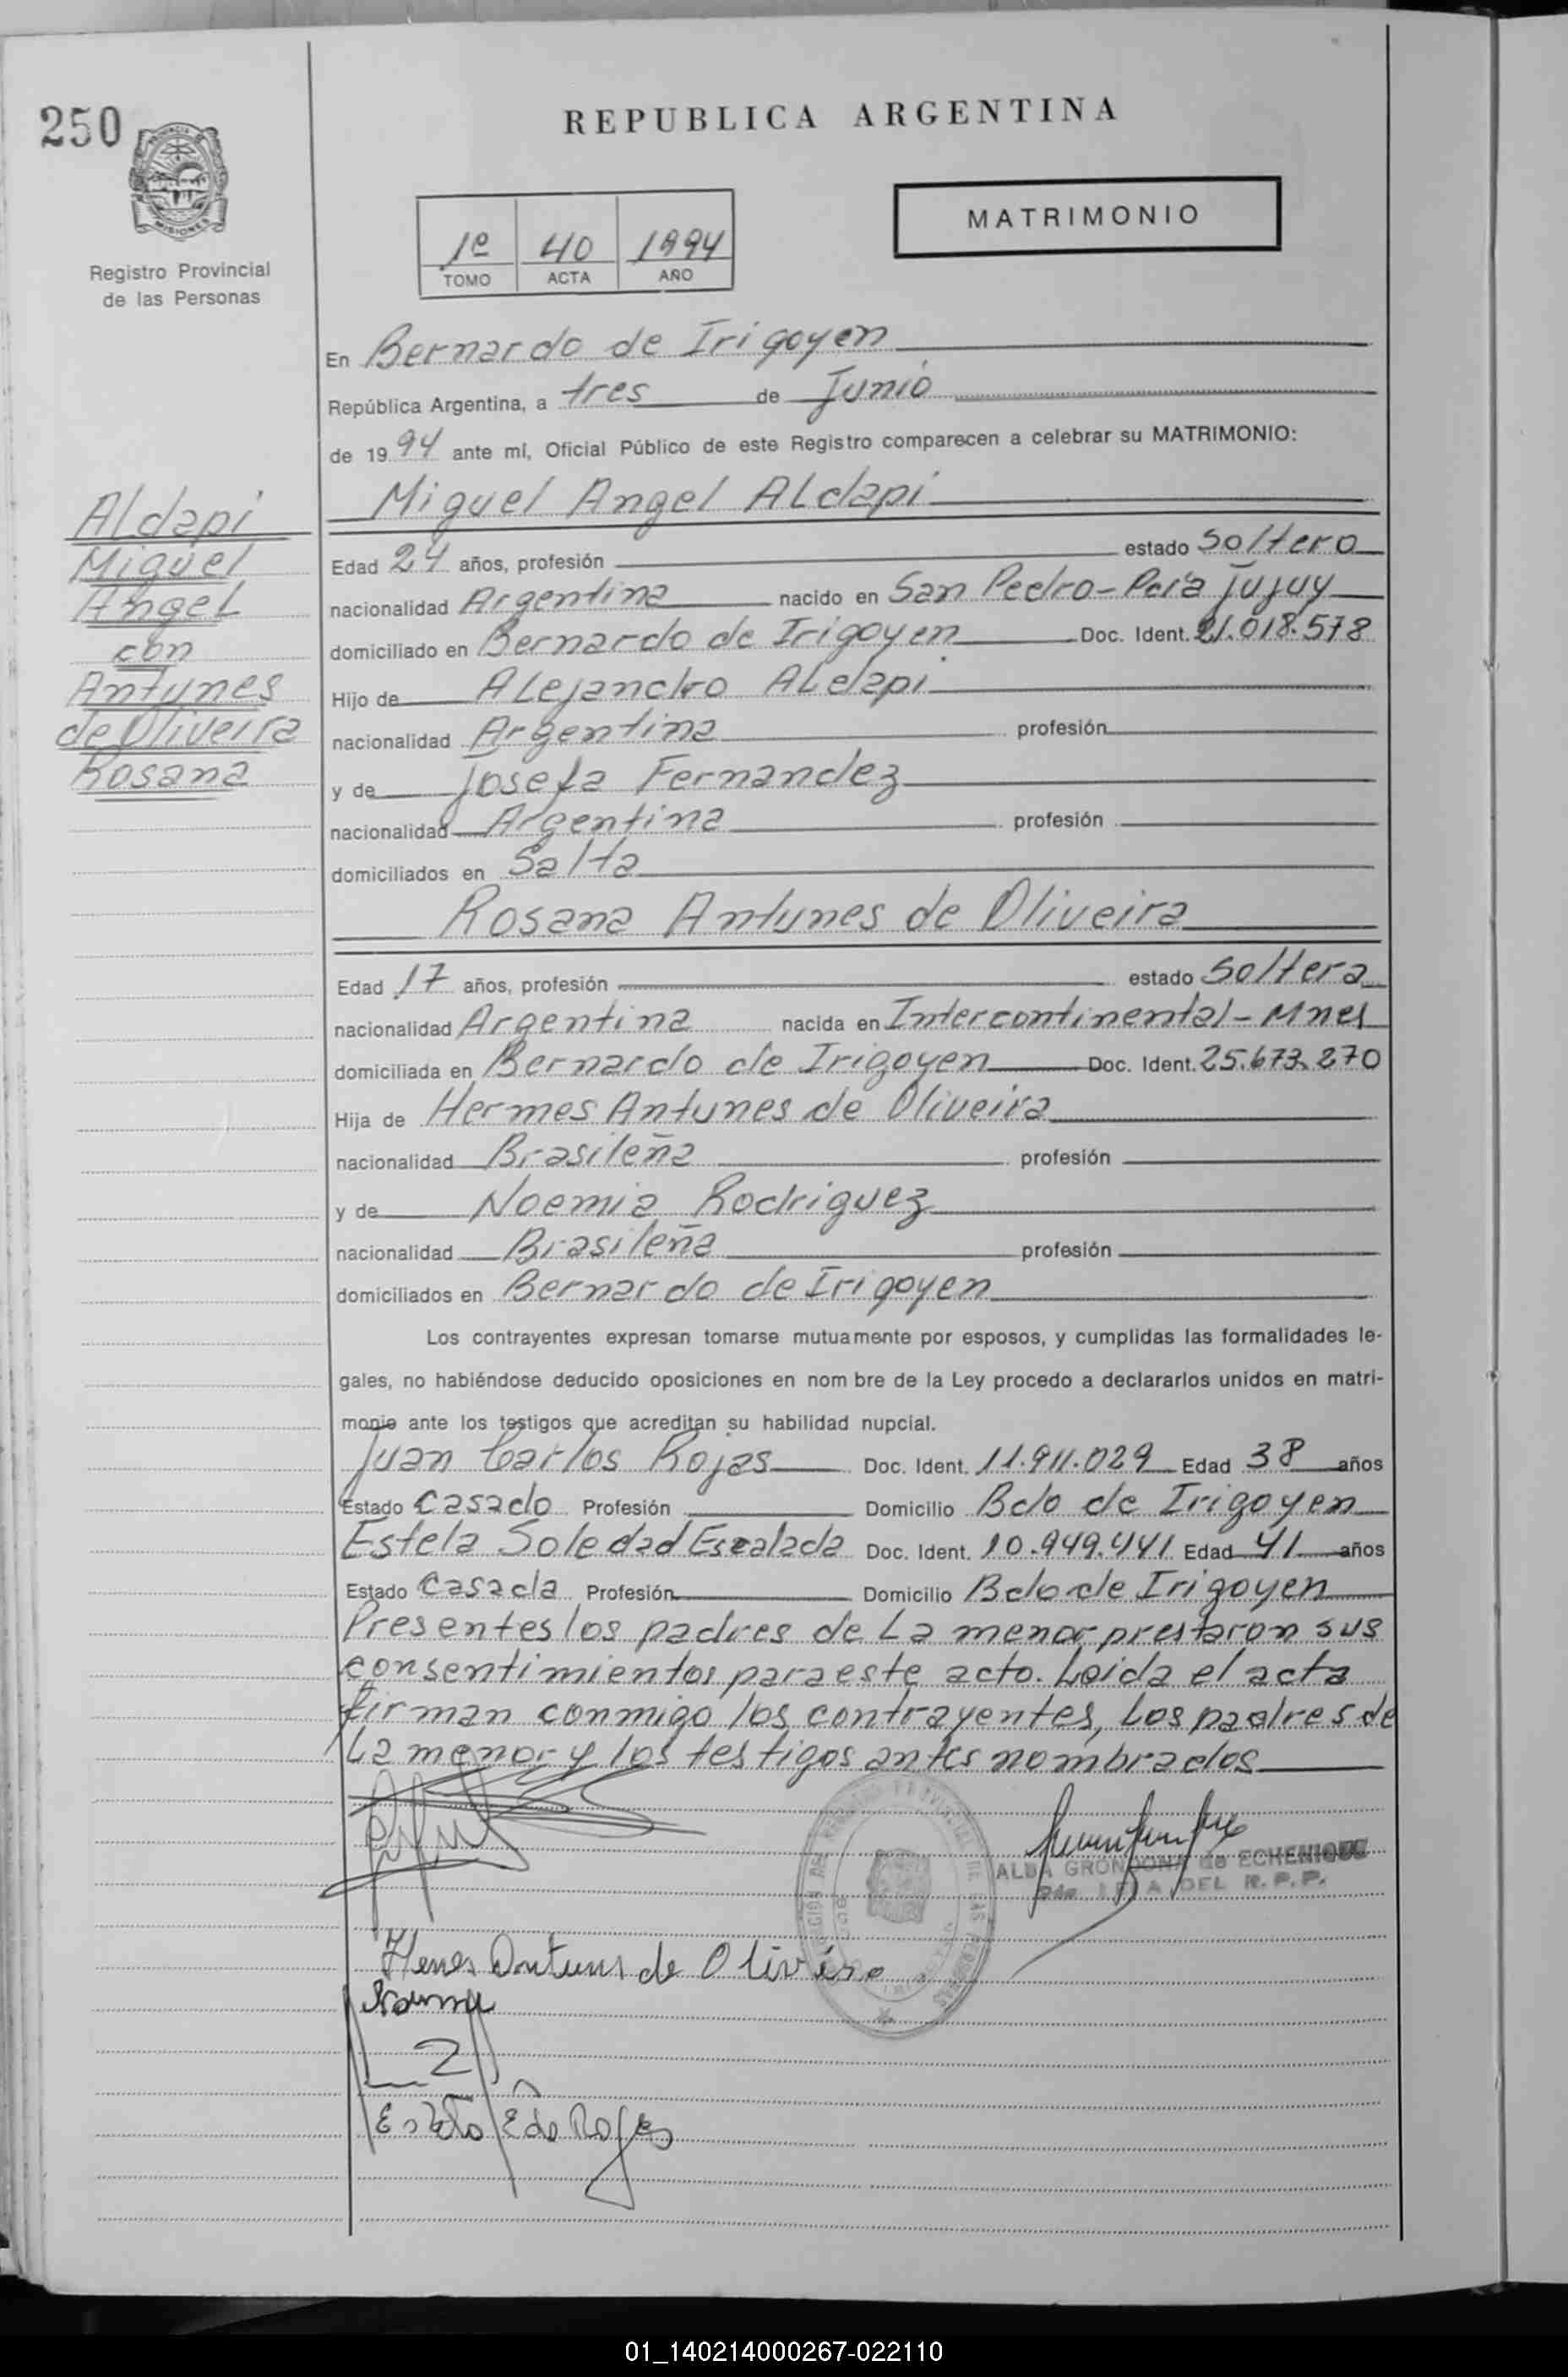 250
REPUBLICA ARGENTINA
MISIONES
Registro Provincial
de las Personas
1º 40 1994
TOMO ACTA AÑO
MATRIMONIO
En Bernardo de Irigoyen
República Argentina, a tres de Junio
de 1994 ante mí, Oficial Público de este Registro comparecen a celebrar su MATRIMONIO:
Aldapi
Miguel
Angel
con
Antunes
de Oliveira
Rosana
Miguel Angel Aldapi
Edad 24 años, profesión estado Soltero
nacionalidad Argentina nacido en San Pedro-Pcia Jujuy
domiciliado en Bernardo de Irigoyen Doc. Ident. 21.018.578
Hijo de Alejandro Aldapi
nacionalidad Argentina profesión
y de Josefa Fernandez
nacionalidad Argentina profesión
domiciliados en Salta
Rosana Antunes de Oliveira
Edad 17 años, profesión estado Soltera
nacionalidad Argentina nacida en Intercontinental-Mnes
domiciliada en Bernardo de Irigoyen Doc. Ident. 25.673.270
Hija de Hermes Antunes de Oliveira
nacionalidad Brasileña profesión
y de Noemia Rodriguez
nacionalidad Brasileña profesión
domiciliados en Bernardo de Irigoyen
Los contrayentes expresan tomarse mutuamente por esposos, y cumplidas las formalidades le-
gales, no habiéndose deducido oposiciones en nom bre de la Ley procedo a declararlos unidos en matri-
monio ante los testigos que acreditan su habilidad nupcial.
Juan Carlos Rojas Doc. Ident. 11.911.029 Edad 38 años
Estado Casado Profesión Domicilio Bdo de Irigoyen
Estela Soledad Escalada Doc. Ident. 10.949.441 Edad 41 años
Estado Casada Profesión Domicilio Bdo de Irigoyen
Presentes los padres de La menor prestaron sus
consentimientos para este acto. Leida el acta
firman conmigo los contrayentes, Los padres de
La menor y los testigos antes nombrados
ALBA GRONDONA de ECHENIQUE
DEL R.P.P.
de Oliveira
Estela E de Rojas
01_140214000267-022110